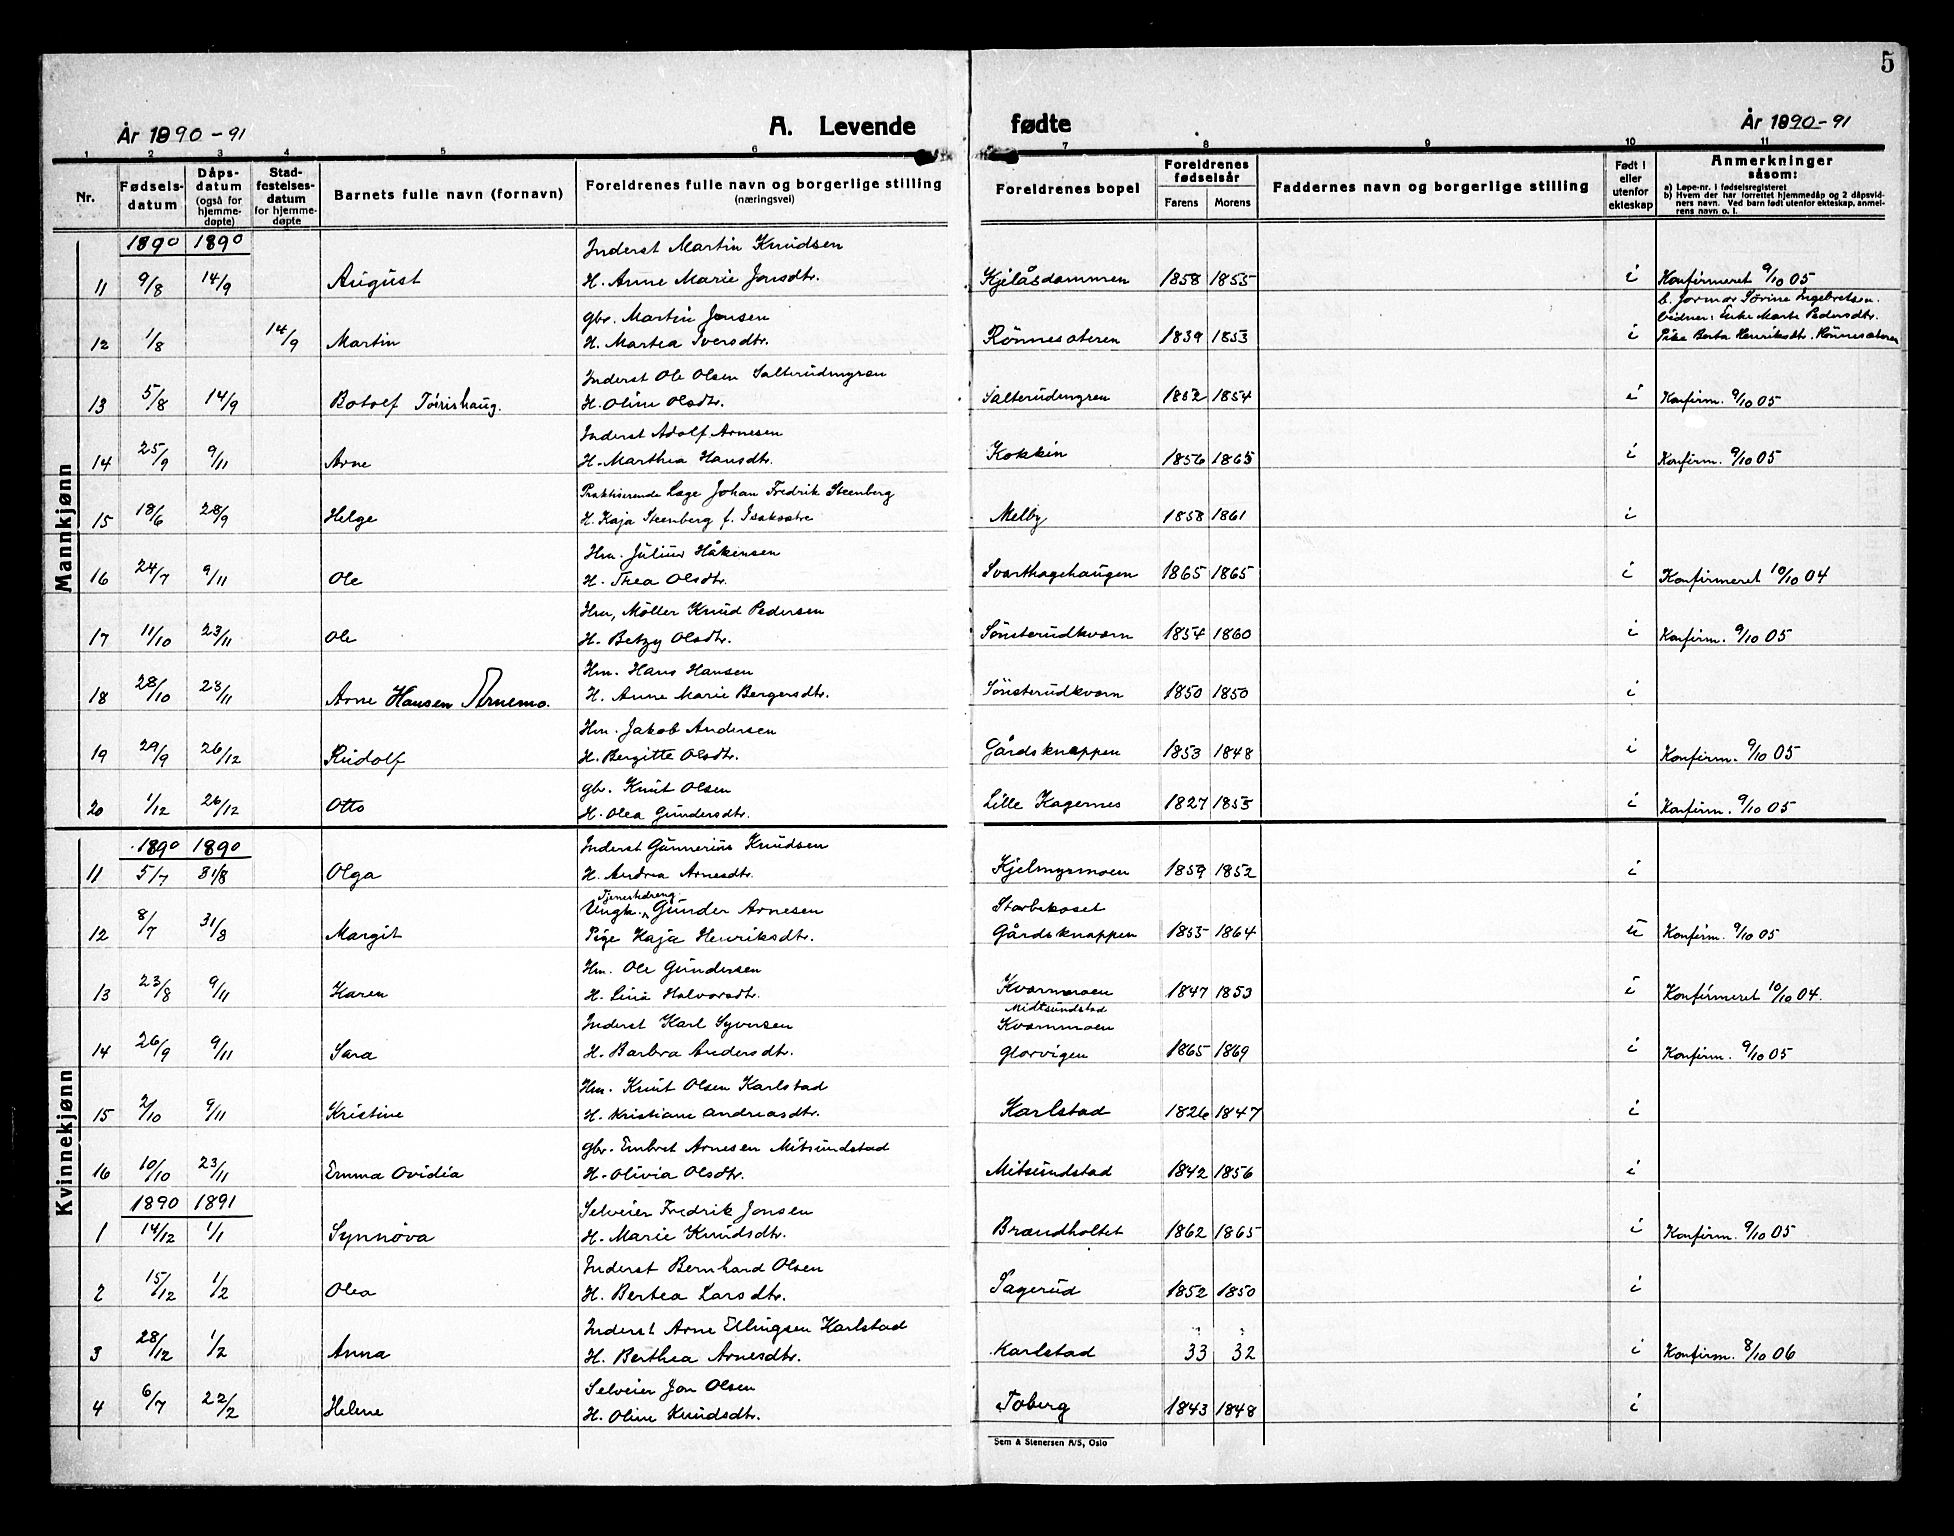 5
År 1890-91 A. Levende fødte År 1890-91
1 2 3 4 5 6 7 8 9 10 11
Nr. Fødselsdatum Dåpsdatum (også for hjemmedøpte) Stadfestelsesdatum for hjemmedøpte Barnets fulle navn (fornavn) Foreldrenes fulle navn og borgerlige stilling (næringsvei) Foreldrenes bopel Foreldrenes fødselsår Farens Morens Faddernes navn og borgerlige stilling Født i eller utenfor ekteskap Anmerkninger såsom:
a) Løpe-nr. i fødselsregisteret
b) Hvem der har forrettet hjemmedåp og 2 dåpsvidners navn. Ved barn født utenfor ekteskap, anmelderens navn o. l.
Mannkjønn
1890 1890 Inderst Martin Knudsen
11 9/8 14/9 August H. Anne Marie Jonsdtr. Kjelåsdammen 1858 1855 i Konfirmeret 9/10 05
gbr. Martin Jensen b. Jormor Sørine Ingebretsen.
vidner: Enke Marte Pedersdtr.
12 1/8 14/9 Martin H. Martea Iversdtr. Rönnesæteren 1839 1853 i Pike Berta Henriksdtr. Rönnesæteren
Inderst Ole Olsen Salterudmyren
13 5/8 14/9 Botolf H. Oline Olsdtr. Salterudmyren 1852 1854 i Konfirm. 9/10 05
Inderst Adolf Arnesen
14 25/9 9/11 Arne H. Marthea Hansdtr. Kokkin 1856 1865 i Konfirm. 9/10 05
Praktiserende Læge Johan Fredrik Steenberg
15 18/6 28/9 Helge H. Kaja Steenberg f. Isaksætre Melby 1858 1861 i
Hm. Julius Håkensen
16 24/7 9/11 Ole H. Thea Olsdtr. Svarthagehaugen 1865 1865 i Konfirmeret 10/10 04
Hm, Möller Knud Pedersen
17 11/10 23/11 Ole H. Betzy Olsdtr. Sønsterudkværn 1854 1860 i Konfirm. 9/10 05
Hm. Hans Hansen
18 28/10 23/11 Arne Hansen Arnemo. H. Anne Marie Bergersdtr. Sønsterudkværn 1850 1850 i
Hm. Jakob Andersen
19 29/9 26/12 Rudolf H. Bergitte Olsdtr. Gårdsknappen 1853 1848 i Konfirm. 9/10 05
gbr. Knut Olsen
20 1/12 26/12 Otto H. Olea Gundersdtr. Lille Kagernes 1827 1853 i Konfirm. 9/10 05
Kvinnekjønn
1890 1890 Inderst Gunnerius Knudsen
11 5/7 31/8 Olga H. Andrea Arnesdtr. Kjelmyrmoen 1859 1852 i
Tjenestdreng
Ungk. Gunder Arnesen Storbekoset
12 8/7 31/8 Margit Pige Kaja Henriksdtr. Gårdsknappen 1855 1864 u Konfirm. 9/10 05
Hm. Ole Gundersen
13 23/8 9/11 Karen H. Lina Halvorsdtr. Kværnmoen 1847 1853 i Konfirmeret 10/10 04.
Midtsundstad
Inderst Karl Syversen Kværnmoen
14 26/9 9/11 Sara H. Barbra Andersdtr. Glorvigen 1865 1869 i Konfirm. 9/10 05
Hm. Knut Olsen Karlstad
15 2/10 9/11 Kristine H. Kristiane Andreasdtr. Karlstad 1826 1847 i
gbr. Embret Arnesen Mitsundstad
16 10/10 23/11 Emma Ovidia H. Olivia Olsdtr. Mitsundstad 1842 1856 i
1890 1891 Selveier Fredrik Jonsen
1 14/12 1/1 Synnöva H. Marie Knudsdtr. Brandholtet 1862 1865 i Konfirm. 9/10 05
Inderst Bernhard Olsen
2 15/12 1/2 Olea H. Bertea Larsdtr. Sagerud 1852 1850 i
Inderst Arne Ellingsen Karlstad
3 28/12 1/2 Anna H. Berthea Arnesdtr. Karlstad 33 32 i Konfirm. 8/10 06
Selveier Jon Olsen
4 6/7 22/2 Helene H. Oline Knudsdtr. Toberg 1843 1848 i
Sem & Stenersen A/S, Oslo